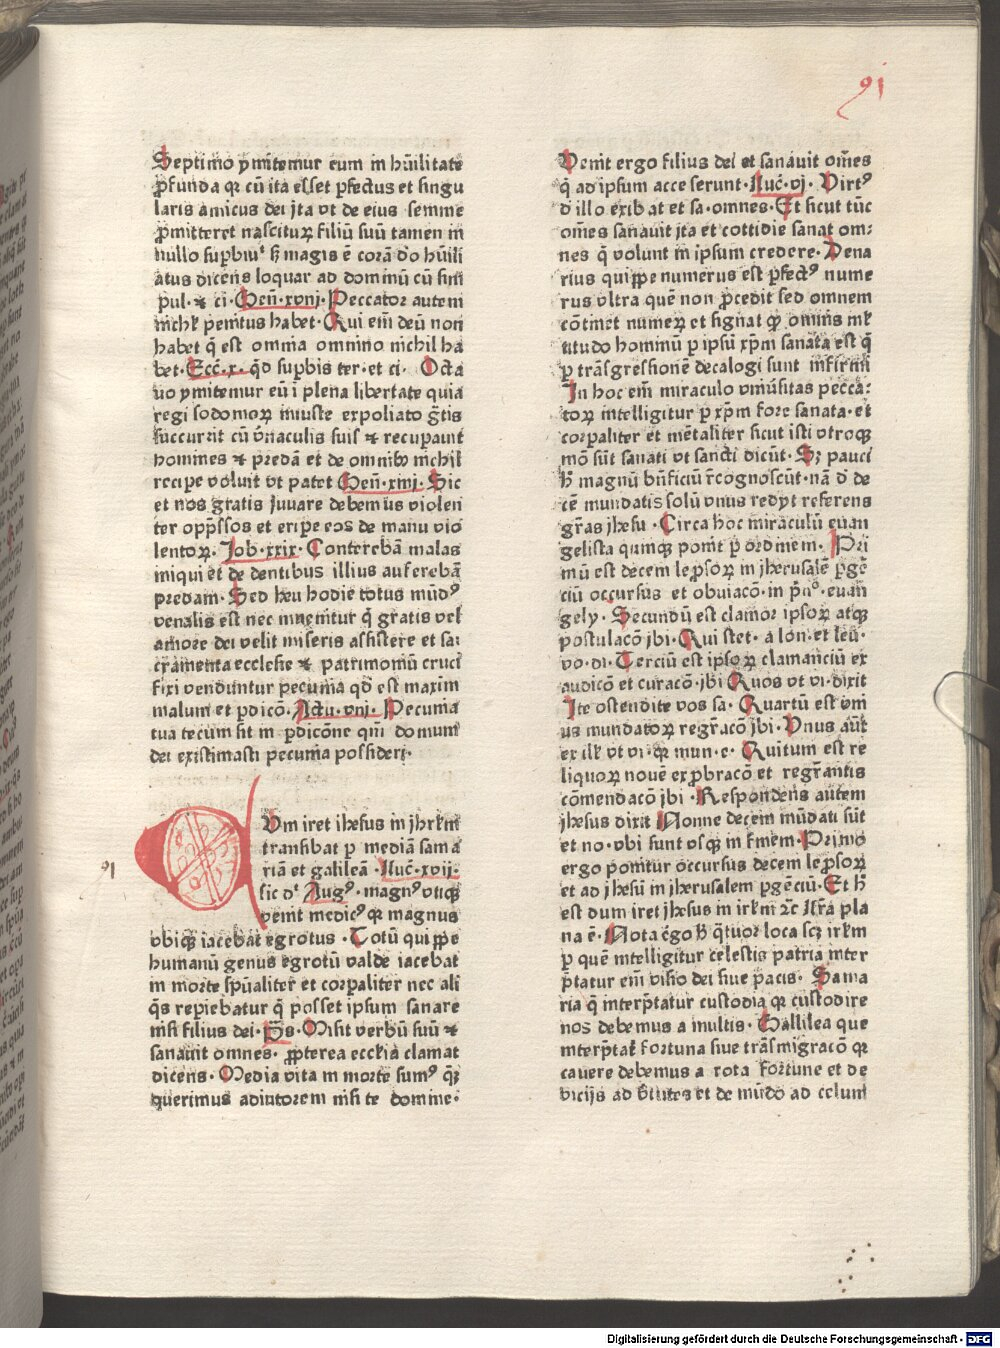 91
Septimo ymitemur eum in hūilitate
ꝓfunda qꝛ cū ita esset ꝑfectus et singu
laris amicus dei jta vt de eius semine
ꝓmitteret nasciturꝝ filiū suū tamen in
nullo suꝑbiuᵗ sꝫ magis ē corā dō hūili
atus dicens loquar ad dominū cū sim
pul· ⁊ ci· Gen̄·xviij· Peccator autem
nichil penitus habet· Qui em̄ deū non
habet q̄ est omnia omnino nichil ha
bet· Ecc̄·x· qd̄ suꝑbis ter· et ci· Octa
uo ymitemur eū ī plena libertate quia
regi sodomoꝝ iniuste expoliato gr̄tis
succurrit cū v̄naculis suis ⁊ recuꝑauit
homines ⁊ predā et de omnibꝰ nichil
recipe voluit vt patet Gen̄·xiiij· Sic
et nos gratis juuare debemus violen
ter opp̄ssos et eripe eos de manu vio
lentoꝝ· Job·xxix· Conterebā malas
iniqui et de dentibus illius auferebā
predam· Sed heu hodie totus mūdꝰ
venalis est nec inuenitur q̄ gratis vel
amore dei velit miseris assistere et sa:
cramenta ecclesie ⁊ patrimoniū cruci
fixi venduntur pecunia qd̄ est maxim
malum et ꝑdicō· Actu·viij· Pecunia
tua tecum sit in ꝑdicōne qm̄ donum
dei existimasti pecunia possideri·
Um iret ihesus in jhrl̄m
transibat ꝑ mediā sama
riā et galileā· Luc̄·xvij·
91
sic dᵗ Augꝰ· magnꝰ vtiqꝫ
venit medicꝰ qꝛ magnus
vbiqꝫ iacebat egrotus · Totū quippe
humanū genus egrotū valde iacebat
in morte spūaliter et corꝑaliter nec ali
q̄s reꝑiebatur q̄ posset ipsum sanare
nisi filius dei· p̄s· Misit verbū suū ⁊
sanauit omnes· ꝓpterea ecclesia clamat
dicens· Media vita in morte sumꝰ qꝫ
querimus adiutorem nisi te domine·
Venit ergo filius dei et sanauit om̄es
q̄ ad ipsum accesserunt· Luc̄·vj· Virtꝰ
d̄ illo exibat et sa· omnes· Et sicut tūc
om̄es sanauit jta et cottidie sanat om:
nes q̄ volunt in ipsum credere· Dena
rius quippe numerus est ꝑfectꝰ nume
rus vltra quē non ꝓcedit sed omnem
cōtinet numeꝝ et signat qꝫ omnis ml
titudo hominū ꝑ ipsū xp̄m sanata est q̄
ꝑ trāsgressionē decalogi sunt infirmi
In hoc em̄ miraculo vniūsitas peccā:
toꝝ intelligitur ꝑ xp̄m fore sanata· et
corꝑaliter et mētaliter sicut isti vtroqꝫ
mō sūt sanati vt sancti dicūt· Sꝫ pauci
h̄ magnū bn̄ficiū r̄cognoscūt· nā d̄ de
cē mundatis solū vnus redyt referens
gr̄as jhesu · Circa hoc miraculū euan
gelista quinqꝫ ponit ꝑ ordinem· Pri
mū est decem leprosoꝝ in jherusalē ꝑgē
ciū occursus et obuiacō· in pn̄º· euan
gely· Secundū est clamor ipsoꝝ atqꝫ
postulacō jbi· Qui stet· a lon· et leu·
vo· di· Terciū est ipsoꝝ clamanciū ex
audicō et curacō· jbi Quos vt vi· dixit
Ite ostendite vos sa· Quartū est vni
us mundatoꝝ regr̄acō jbi· Vnus aūt
ex ill vt vi· qꝛ mun· e· Quitum est re
liquoꝝ nouē exꝓbracō et regr̄antis
cōmendacō jbi · Respondens autem
jhesus dixit Nonne decem mūdati sūt
et no· vbi sunt vsqꝫ in finem· Primo
ergo ponitur occursus decem leꝓsoꝝ
et ad jhesū in jherusalem ꝑgēciū· Et h̄
est dum iret jhesus in irl̄m ⁊c̄ Lr̄a pla
na ē· Nota ḡo h̄ q̄tuor loca scꝫ irl̄m
ꝑ quē intelligitur celestis patria inter
p̄tatur em̄ visio dei siue pacis· Sama
ria q̄ interp̄tatur custodia qꝛ custodire
nos debemus a multis· Gallilea que
interp̄tať fortuna siue trāsmigracō qꝛ
cauere debemus a rota fortune et de
vicijs ad v̄tutes et de mūdo ad celum
Digitalisierung gefördert durch die Deutsche Forschungsgemeinschaft - DFG